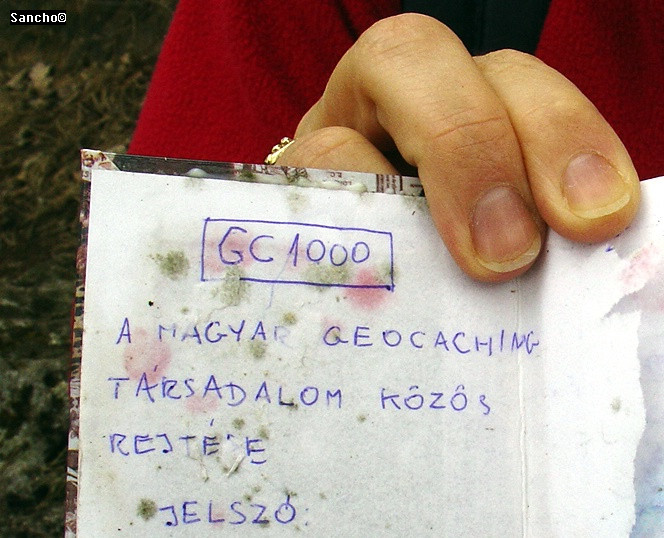 Sancho©
GC1000
A MAGYAR GEOCACHING
TÁRSADALOM KÖZÖS
REJTÉSE
JELSZÓ: